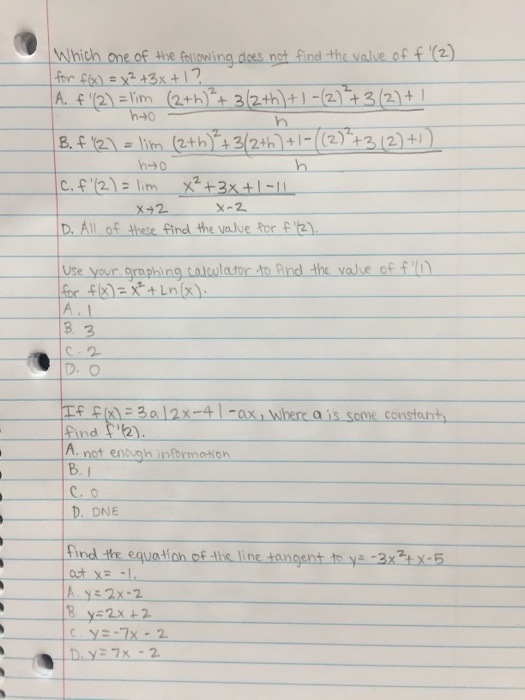 Which one of the following does not find the value of f'(2)
for f(x) = x² + 3x + 1?
A. f'(2) = lim h→0 (2+h)² + 3(2+h) + 1 - (2)² + 3(2) + 1 / h
B. f'(2) = lim h→0 (2+h)² + 3(2+h) + 1 - ((2)² + 3(2) + 1) / h
C. f'(2) = lim x→2 x² + 3x + 1 - 11 / x - 2
D. All of these find the value for f'(2).
Use your graphing calculator to find the value of f'(1)
for f(x) = x² + Ln(x).
A. 1
B. 3
C. 2
D. 0
If f(x) = 3a|2x-4| - ax, where a is some constant,
find f'(2).
A. not enough information
B. 1
C. 0
D. DNE
find the equation of the line tangent to y = -3x² + x - 5
at x = -1.
A. y = 2x - 2
B. y = 2x + 2
C. y = -7x - 2
D. y = 7x - 2